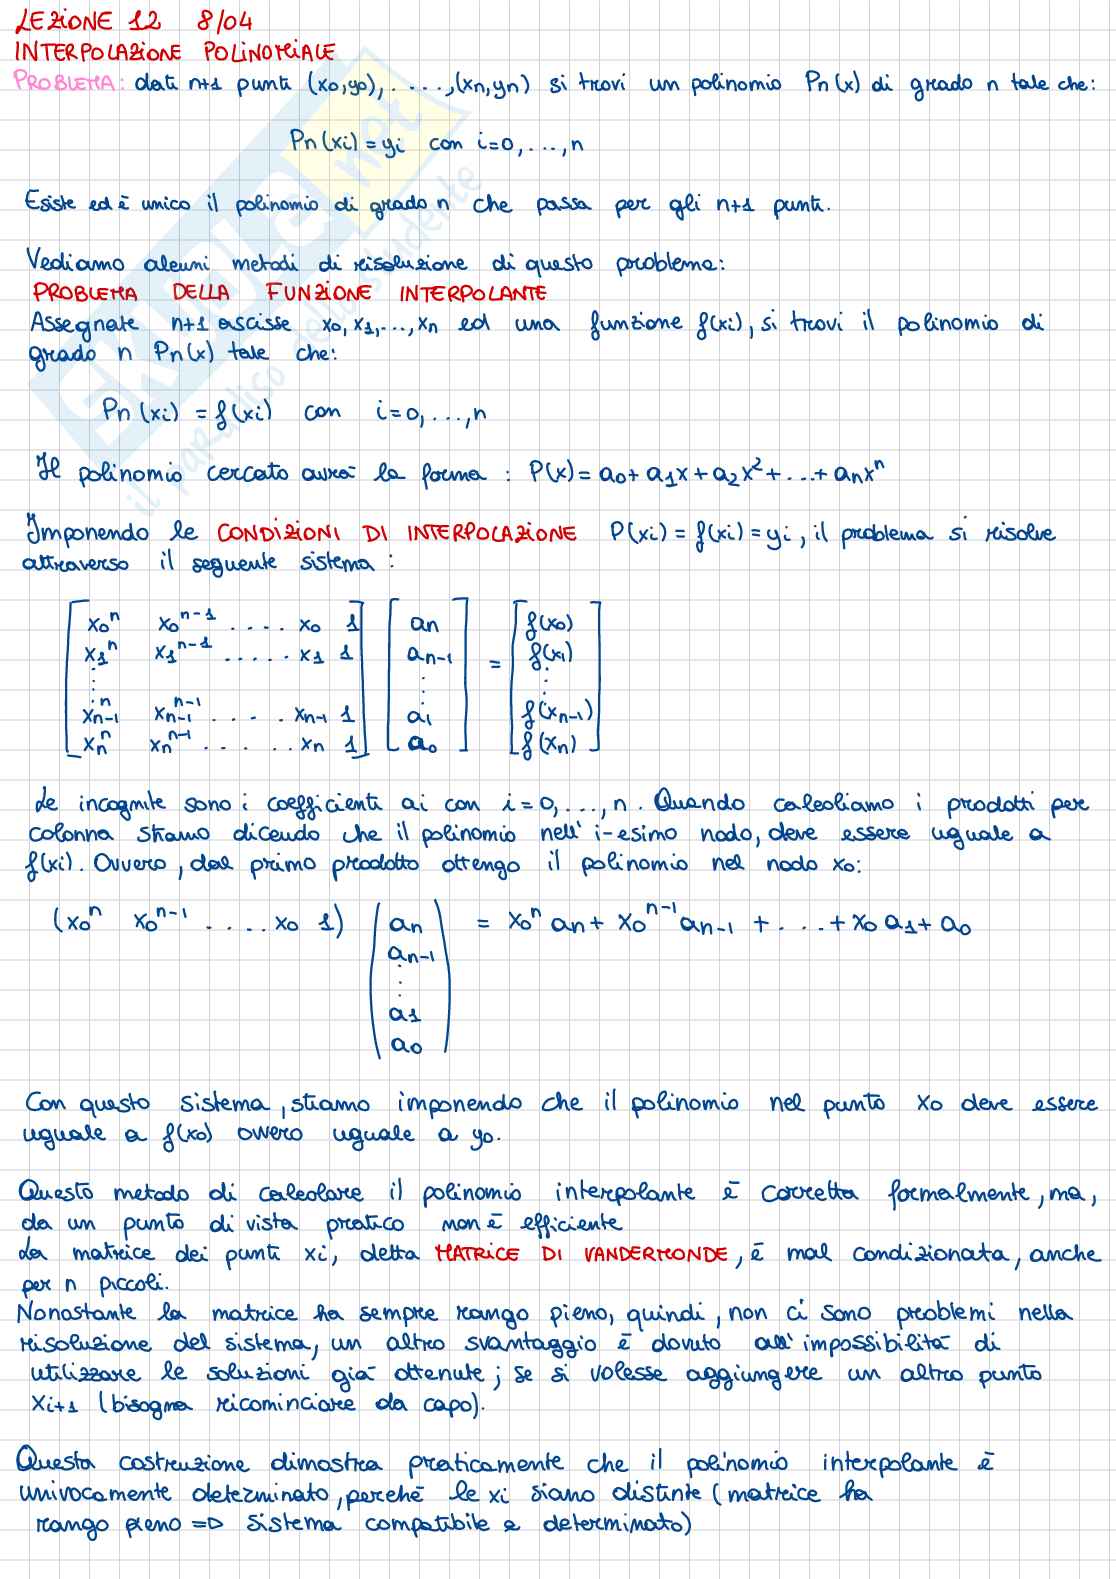 LEZIONE 12 8/04
INTERPOLAZIONE POLINOMIALE
PROBLEMA: dati n+1 punti (x₀,y₀), . . . .,(xₙ,yₙ) si trovi un polinomio Pₙ(x) di grado n tale che:
Pₙ(xᵢ) = yᵢ con i=0,...,n
Esiste ed è unico il polinomio di grado n che passa per gli n+1 punti.
Vediamo alcuni metodi di risoluzione di questo problema:
PROBLEMA DELLA FUNZIONE INTERPOLANTE
Assegnate n+1 ascisse x₀, x₁,..., xₙ ed una funzione f(xᵢ), si trovi il polinomio di
grado n Pₙ(x) tale che:
Pₙ(xᵢ) = f(xᵢ) con i=0,...,n
Il polinomio cercato avrà la forma : P(x) = a₀+ a₁x + a₂x² + ...+ aₙxⁿ
Imponendo le CONDIZIONI DI INTERPOLAZIONE P(xᵢ) = f(xᵢ) = yᵢ, il problema si risolve
attraverso il seguente sistema :
x₀ⁿ x₀ⁿ⁻¹ . . . . x₀ 1 aₙ f(x₀)
x₁ⁿ x₁ⁿ⁻¹ . . . . . x₁ 1 aₙ₋₁ = f(x₁)
xₙ₋₁ⁿ xₙ₋₁ⁿ⁻¹ . . . . xₙ₋₁ 1 a₁ f(xₙ₋₁)
xₙⁿ xₙⁿ⁻¹ . . . . . xₙ 1 a₀ f(xₙ)
Le incognite sono i coefficienti aᵢ con i=0,...,n. Quando calcoliamo i prodotti per
colonna stiamo dicendo che il polinomio nell' i-esimo nodo, deve essere uguale a
f(xᵢ). Ovvero, dal primo prodotto ottengo il polinomio nel nodo x₀:
(x₀ⁿ x₀ⁿ⁻¹ . . . . x₀ 1) aₙ = x₀ⁿ aₙ + x₀ⁿ⁻¹ aₙ₋₁ + . . . + x₀ a₁ + a₀
aₙ₋₁
a₁
a₀
Con questo sistema, stiamo imponendo che il polinomio nel punto x₀ deve essere
uguale a f(x₀) ovvero uguale a y₀.
Questo metodo di calcolare il polinomio interpolante è corretta formalmente, ma,
da un punto di vista pratico non è efficiente
La matrice dei punti xᵢ, detta MATRICE DI VANDERMONDE, è mal condizionata, anche
per n piccoli.
Nonostante la matrice ha sempre rango pieno, quindi, non ci sono problemi nella
risoluzione del sistema, un altro svantaggio è dovuto all'impossibilità di
utilizzare le soluzioni già ottenute; se si volesse aggiungere un altro punto
xᵢ₊₁ (bisogna ricominciare da capo).
Questa costruzione dimostra praticamente che il polinomio interpolante è
univocamente determinato, perché le xᵢ siano distinte (matrice ha
rango pieno => sistema compatibile e determinato)
SKUOLA.net
il paradiso dello studente